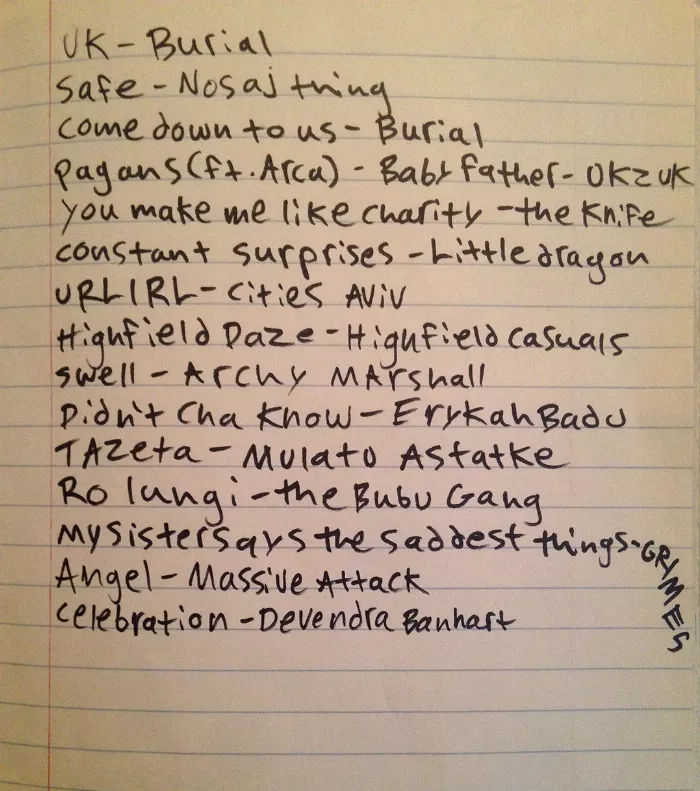 UK - Burial
safe - Nosaj thing
come down to us - Burial
pagans (ft. Arca) - Baby father - UK2UK
you make me like charity - the Knife
constant surprises - Little dragon
URL IRL - cities AViV
Highfield Daze - Highfield casuals
swell - Archy MArshall
Didn't Cha Know - Erykah Badu
TAZeta - Mulatu Astatke
Ro lungi - the Bubu Gang
my sister says the saddest things - GRIMES
Angel - Massive Attack
celebration - Devendra Banhart